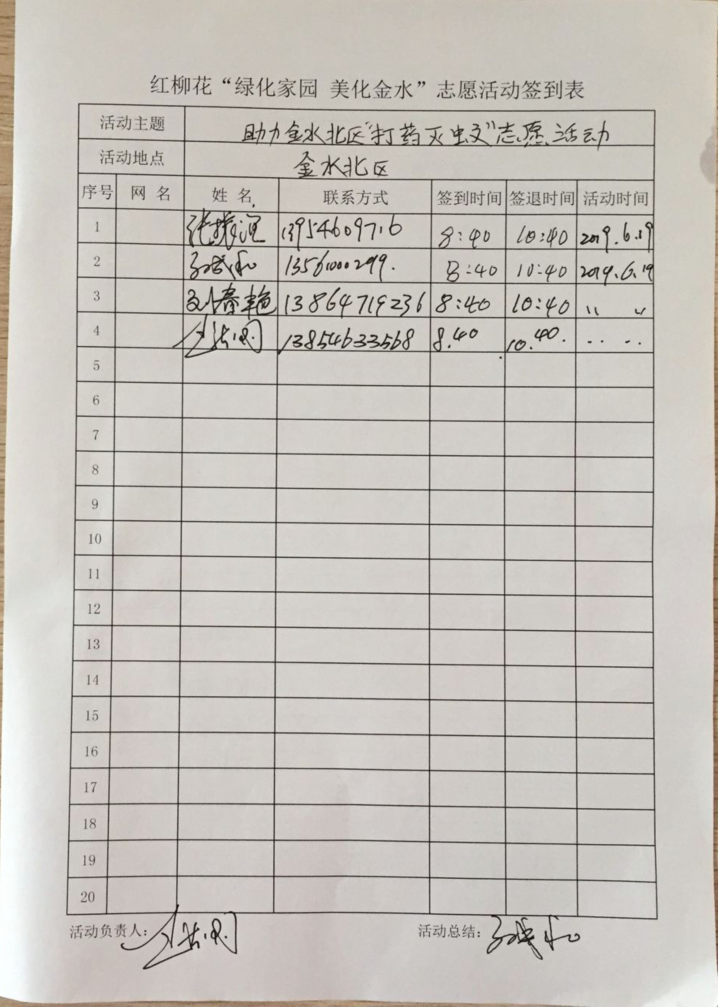 红柳花“绿化家园 美化金水”志愿活动签到表
活动主题 助力金水北区“打药灭蚊”志愿活动
活动地点 金水北区
序号 网 名 姓 名 联系方式 签到时间 签退时间 活动时间
1 13954609716 8:40 10:40 2019.6.19
2 13561000299. 8:40 10:40 2019.6.19
3 刘春艳 13864719236 8:40 10:40 〃 〃
4 13854633568 8.40 10.40.
5
6
7
8
9
10
11
12
13
14
15
16
17
18
19
20
活动负责人: 活动总结: